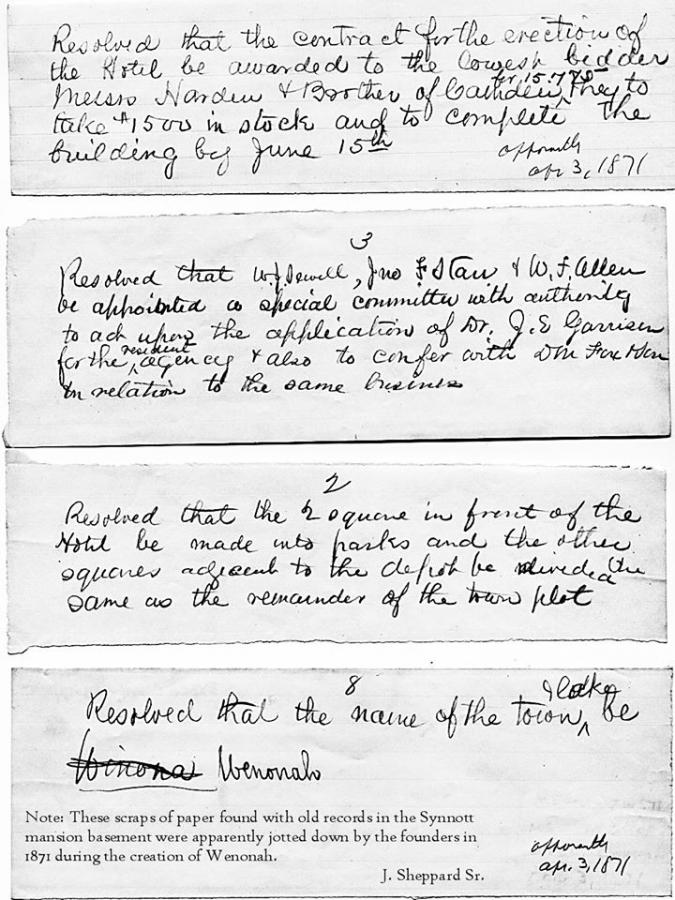 Resolved that the contract for the erection of
the Hotel be awarded to the lowest bidder
for 15.775
Messrs Harden & Brother of Camden, they to
take $1500 in stock and to complete the
building by June 15th
apparently
apr 3, 1871
3
Resolved that W.J. Sewell, Jno F Starr & W. F. Allen
be appointed a special committee with authority
to act upon the application of Dr. J. E Garrison
resident
for the agency & also to confer with
in relation to the same business
2
Resolved that the 2 square in front of the
Hotel be made into parks and the other
squares adjacent to the depot be divided the
same as the remainder of the town plot
8
Resolved that the name of the town be
Winona Wenonah
Note: These scraps of paper found with old records in the Synnott
mansion basement were apparently jotted down by the founders in
1871 during the creation of Wenonah.
J. Sheppard Sr.
apparently
apr. 3, 1871